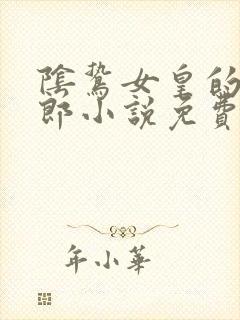 陰鷙女皇的
郎小說免費
年小華